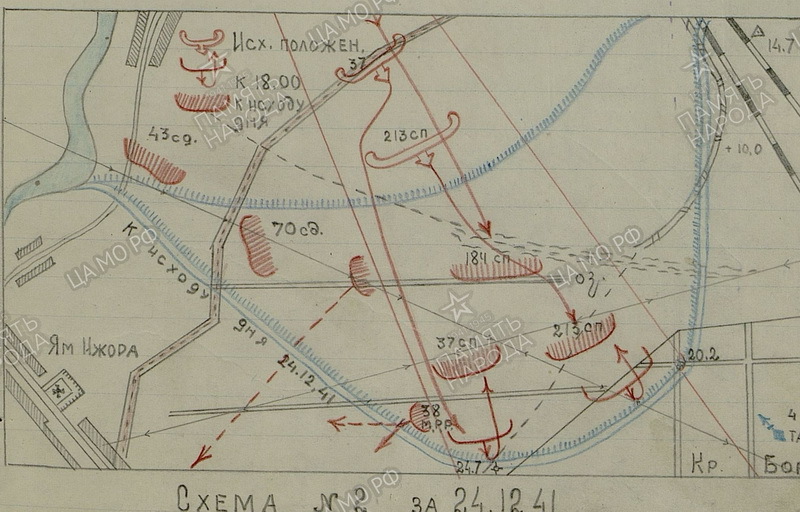 Исх. положен.
К 18.00
К исходу
дня
14.7
37
43 сд.
213 сп
+ 10,0
70 сд.
К исходу дня 24.12.41
184 сп
оз.
213 сп
37 сп
Ям Ижора
20.2
38
МРР
24.7
4
ТА
Кр. Бор
Схема №2 за 24.12.41
ЦАМО РФ
ПАМЯТЬ НАРОДА
ЦАМО РФ
ПАМЯТЬ НАРОДА
ЦАМО РФ
ЦАМО РФ
ПАМЯТЬ НАРОДА
ПАМЯТЬ НАРОДА
ЦАМО РФ
ЦАМО РФ